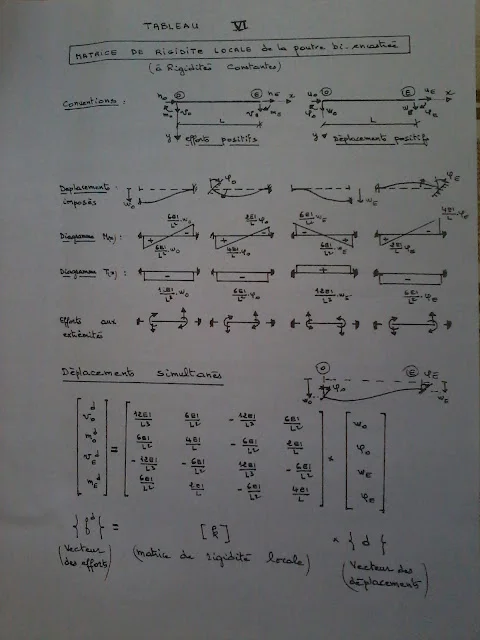 TABLEAU VI
MATRICE DE RIGIDITE LOCALE de la poutre bi-encastrée
(à Rigidités Constantes)
Conventions :
n₀ O E n_E x u₀ O E u_E x
v₀ v_E m_E w₀ w_E
L L
y efforts positifs y Déplacements positifs
Déplacements imposés : w₀ φ₀ w_E φ_E
Diagramme M(x) : 6EI/L² w₀ 2EI/L φ₀ 6EI/L² w_E 4EI/L φ_E
+ - + - - + + -
6EI/L² w₀ 4EI/L φ₀ 6EI/L² w_E 2EI/L φ_E
Diagramme T(x) : - - + -
12EI/L³ w₀ 6EI/L² φ₀ 12EI/L³ w_E 6EI/L² φ_E
Efforts aux extrémités
Déplacements simultanés
O E φ_E
w₀ φ₀ w_E
v₀ᵈ 12EI/L³ 6EI/L² - 12EI/L³ 6EI/L² w₀
m₀ᵈ = 6EI/L² 4EI/L - 6EI/L² 2EI/L × φ₀
v_Eᵈ - 12EI/L³ - 6EI/L² 12EI/L³ - 6EI/L² w_E
m_Eᵈ 6EI/L² 2EI/L - 6EI/L² 4EI/L φ_E
{fᵈ} = [k] × {d}
(Vecteur des efforts) (matrice de rigidité locale) (Vecteur des déplacements)